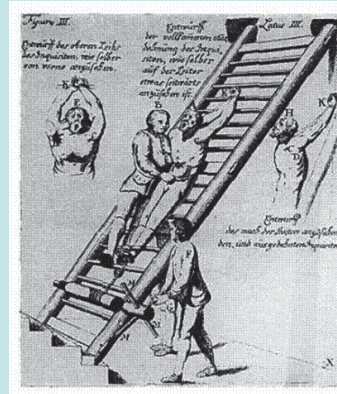 Figura III.
Entwurff des oberen Theils
des Inquisiten, wie selber
von vorne anzusehen.
K
E
Entwurff
der vollkommen aus
dehnung des Inqui,
siten, wie selber
auf der Leiter
etwas seitwärts
anzusehen ist.
B
K
Latus III.
H
K
D
Entwurff
des nach der Seiten anzusehen
den, und ausgedehnten Inquisiten
M
X